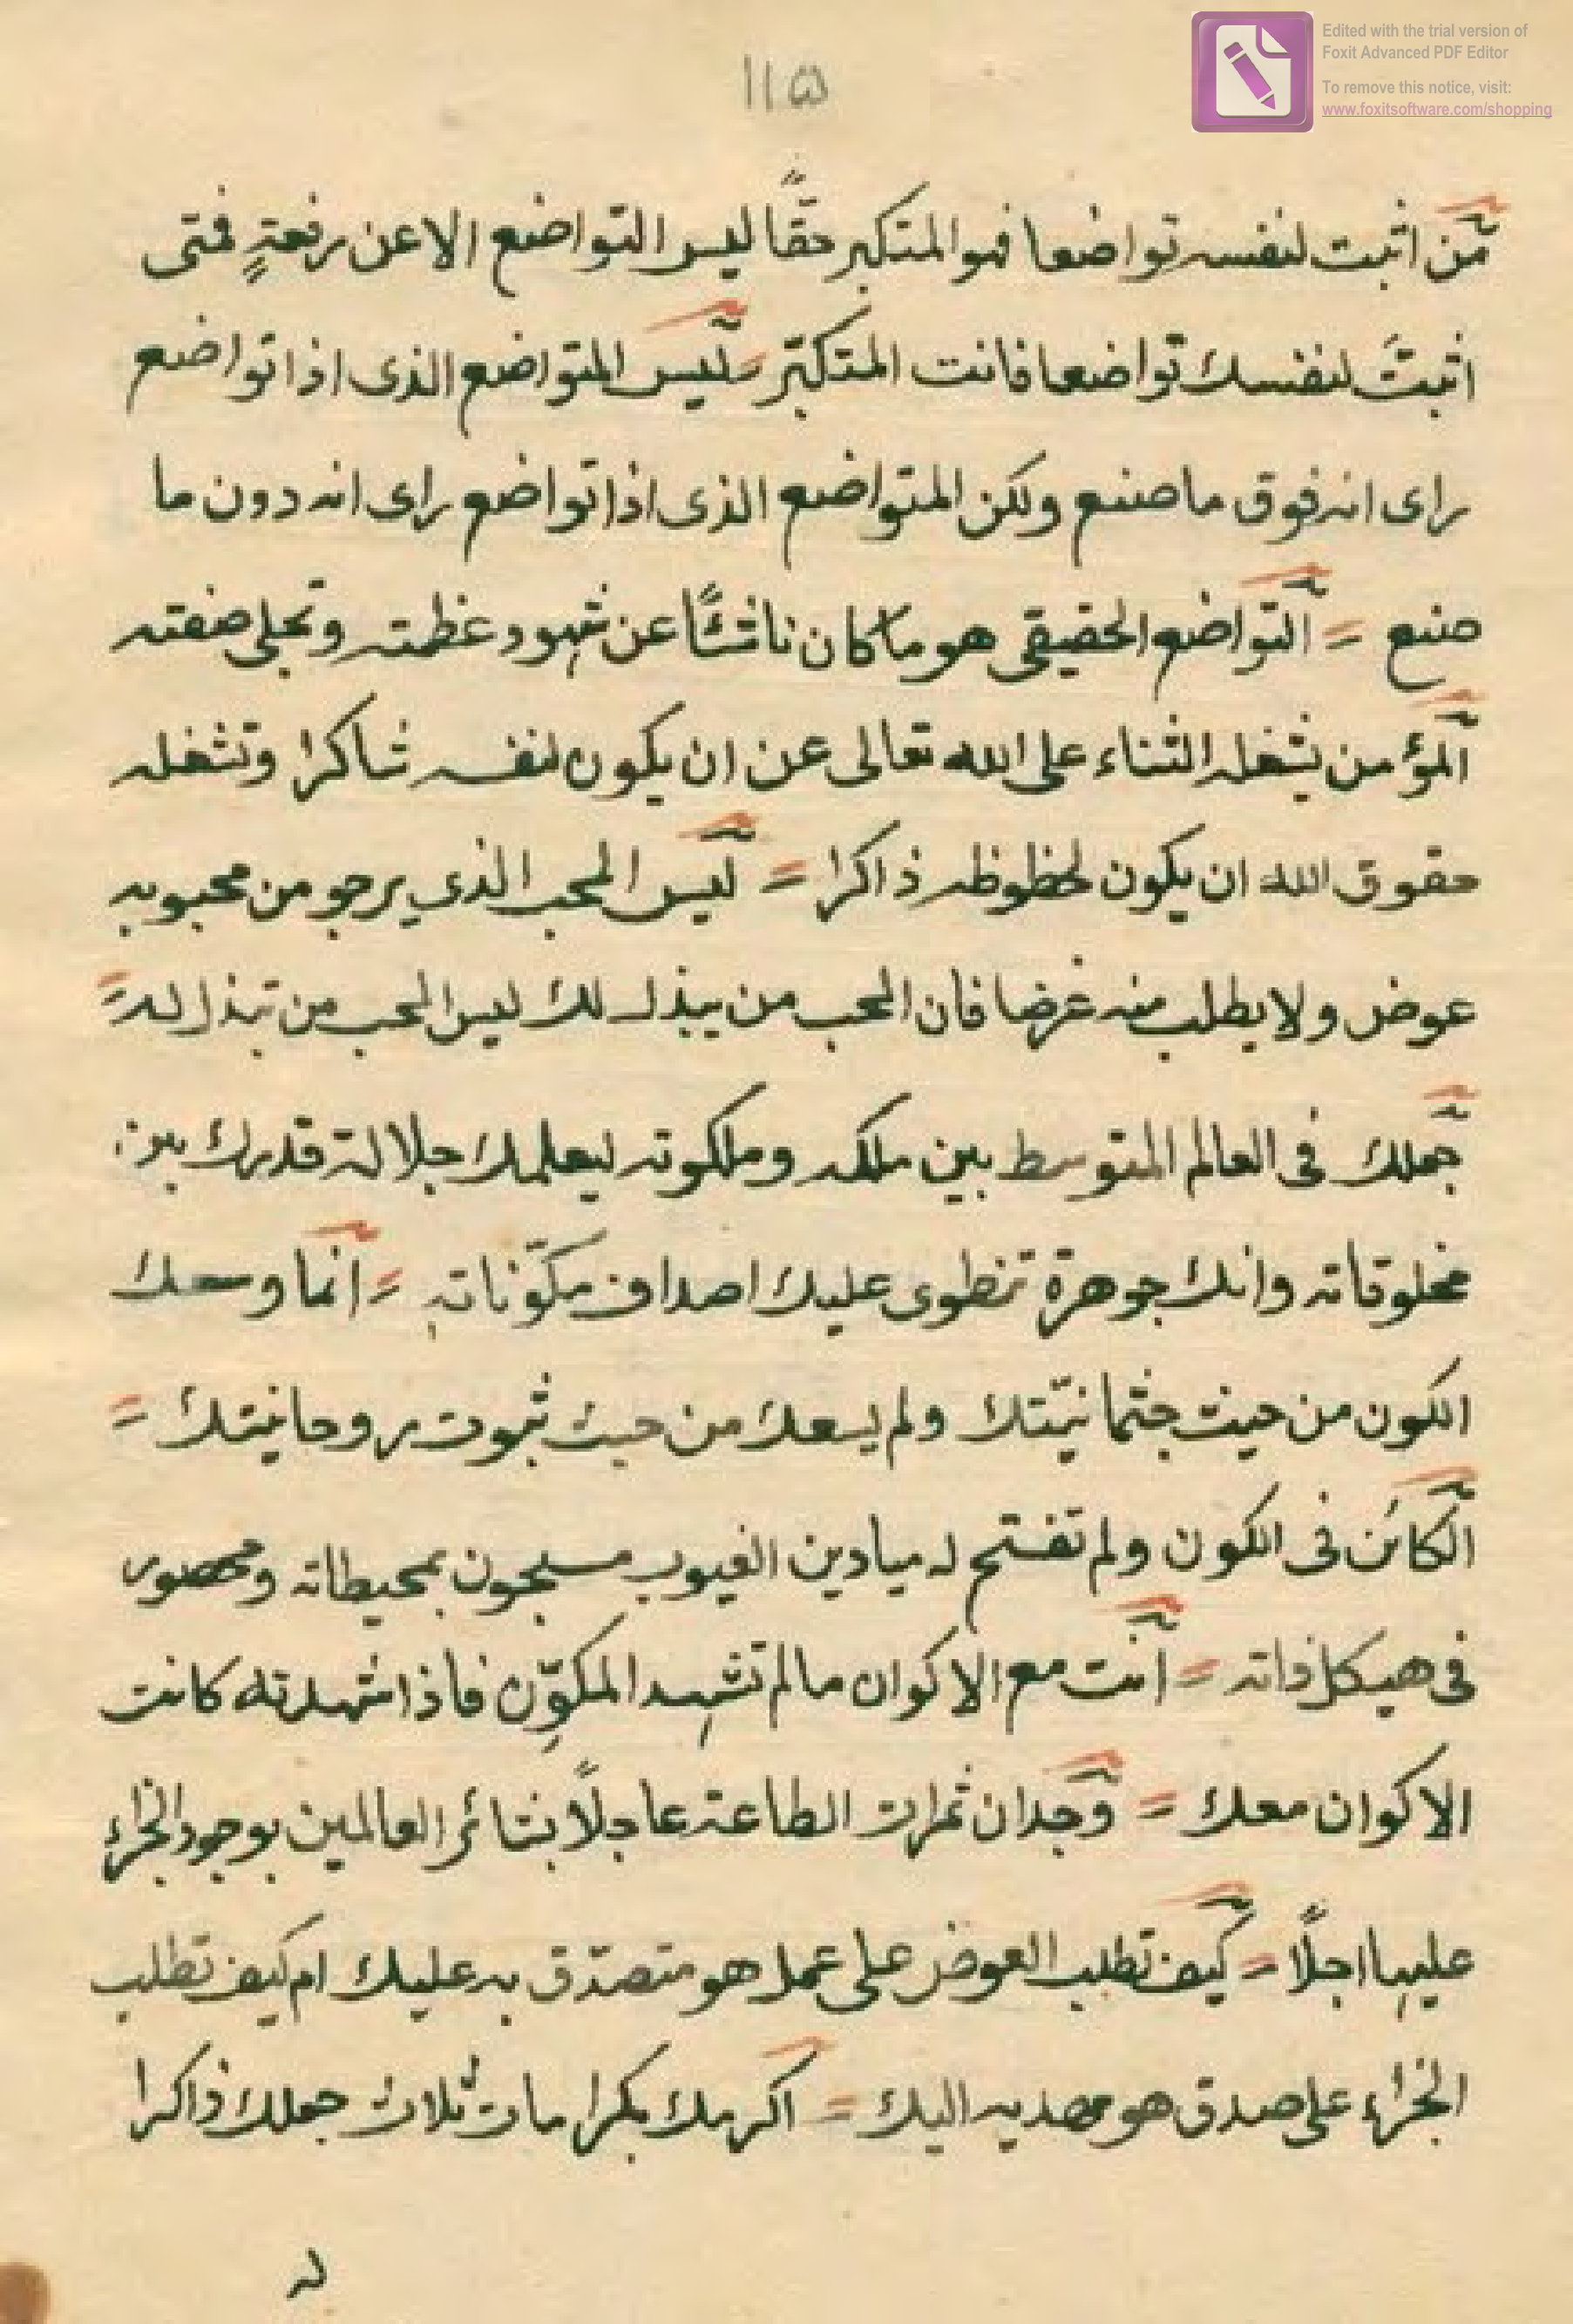 Edited with the trial version of
Foxit Advanced PDF Editor
To remove this notice, visit:
www.foxitsoftware.com/shopping
١١٥
من اثبت لنفسه تواضعا فهو المتكبر حقًّا ليس التواضع الا عن رفعةٍ فمتى
اثبتَ لنفسك تواضعا فانت المتكبّر = ليس المتواضع الذى اذا تواضع
راى انه فوق ما صنع ولكن المتواضع الذى اذا تواضع راى انه دون ما
صنع = التواضع الحقيقى هو ما كان ناشئًا عن شهود عظمته وتجلى صفته
المؤمن يشغله الثناء على الله تعالى عن ان يكون لنفسه شاكرا وتشغله
حقوق الله ان يكون لحظوظه ذاكرا = ليس المحب الذي يرجو من محبوبه
عوض ولا يطلب منه غرضا فان المحب من يبذل لك ليس المحب من تبذل له =
جعلك فى العالم المتوسط بين ملكه وملكوته ليعلمك جلالة قدرك بين
مخلوقاته وانك جوهرة تنطوى عليك اصداف مكوّناته = انما وسعك
الكون من حيث جثمانيّتك ولم يسعك من حيث ثبوت روحانيتك =
الكائن فى الكون ولم تفتح له ميادين الغيوب مسجون بمحيطاته ومحصور
فى هيكل ذاته = انت مع الاكوان ما لم تشهد المكوِّن فاذا شهدته كانت
الاكوان معك = وجدان ثمرات الطاعة عاجلًا بشائر العالمين بوجود الجزاء
عليها اجلًا = كيف تطلب العوض على عمل هو متصدّق به عليك ام كيف تطلب
الجزاء على صدق هو مهديه اليك = اكرمك بكرامات ثلاث جعلك ذاكرا
له